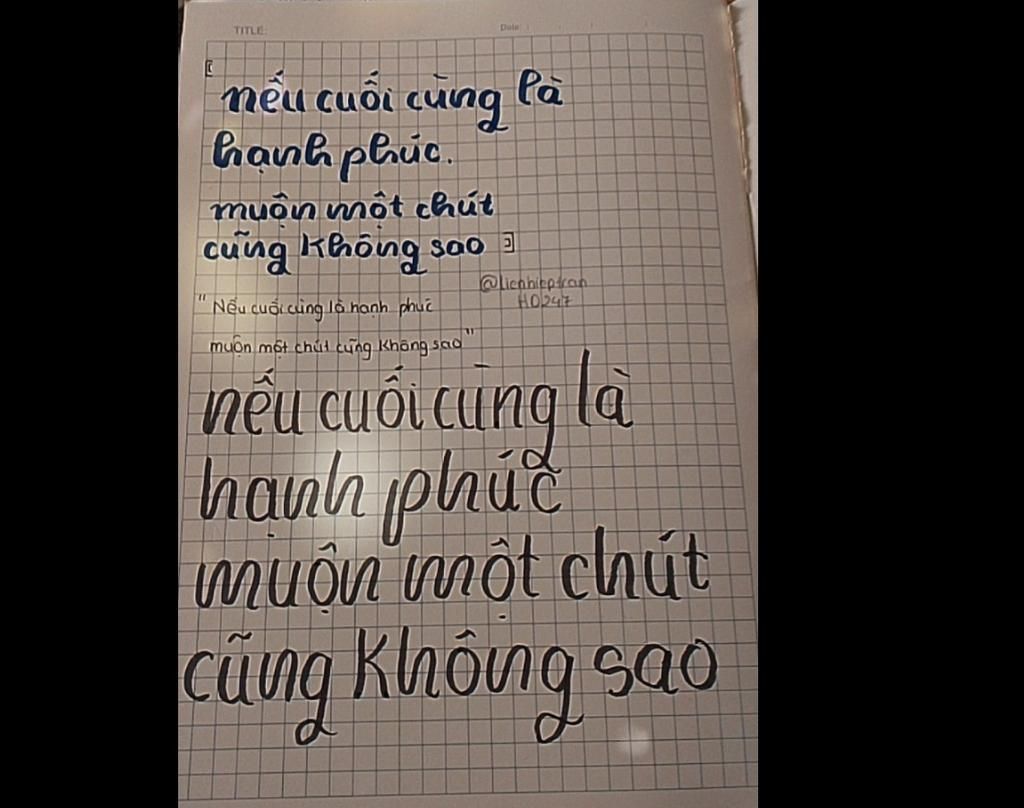 TITLE:
Date:
[
nếu cuối cùng là
hạnh phúc.
muộn một chút
cũng không sao ]
@lienhieptran
H0247
"Nếu cuối cùng là hạnh phúc
muộn một chút cũng không sao"
nếu cuối cùng là
hạnh phúc
muộn một chút
cũng không sao